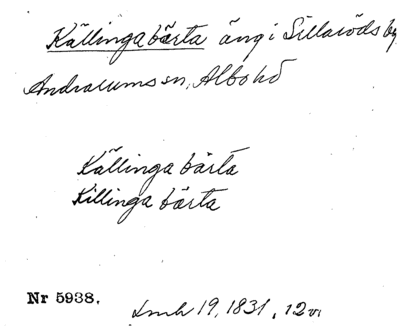 Källingabärta äng i Sillaröds by
Andrarums sn, Albo hd
Källinga bärta
Killinga bärta
Nr 5938.
Lmh 19, 1831, 12 vi